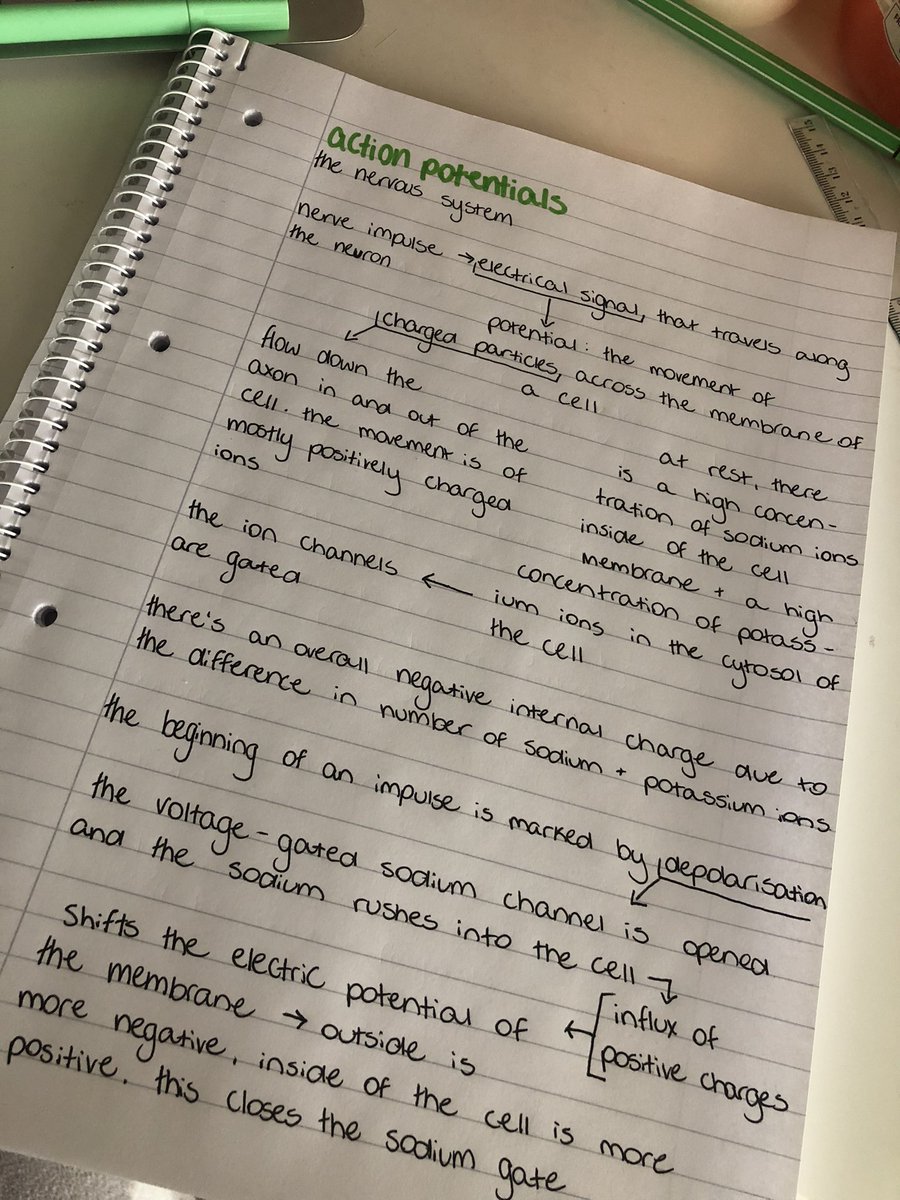 action potentials
the nervous system
nerve impulse → electrical signal, that travels along
the neuron
potential: the movement of
charged particles, across the membrane of
a cell
flow down the
axon in and out of the
cell. the movement is of
mostly positively charged
ions
at rest, there
is a high concen-
tration of sodium ions
inside of the cell
membrane + a high
concentration of potass-
ium ions in the cytosol of
the cell
the ion channels ←
are gated
there's an overall negative internal charge due to
the difference in number of sodium + potassium ions
the beginning of an impulse is marked by depolarisation
the voltage-gated sodium channel is opened
and the sodium rushes into the cell
influx of
positive charges
Shifts the electric potential of ←
the membrane → outside is
more negative, inside of the cell is more
positive. this closes the sodium gate